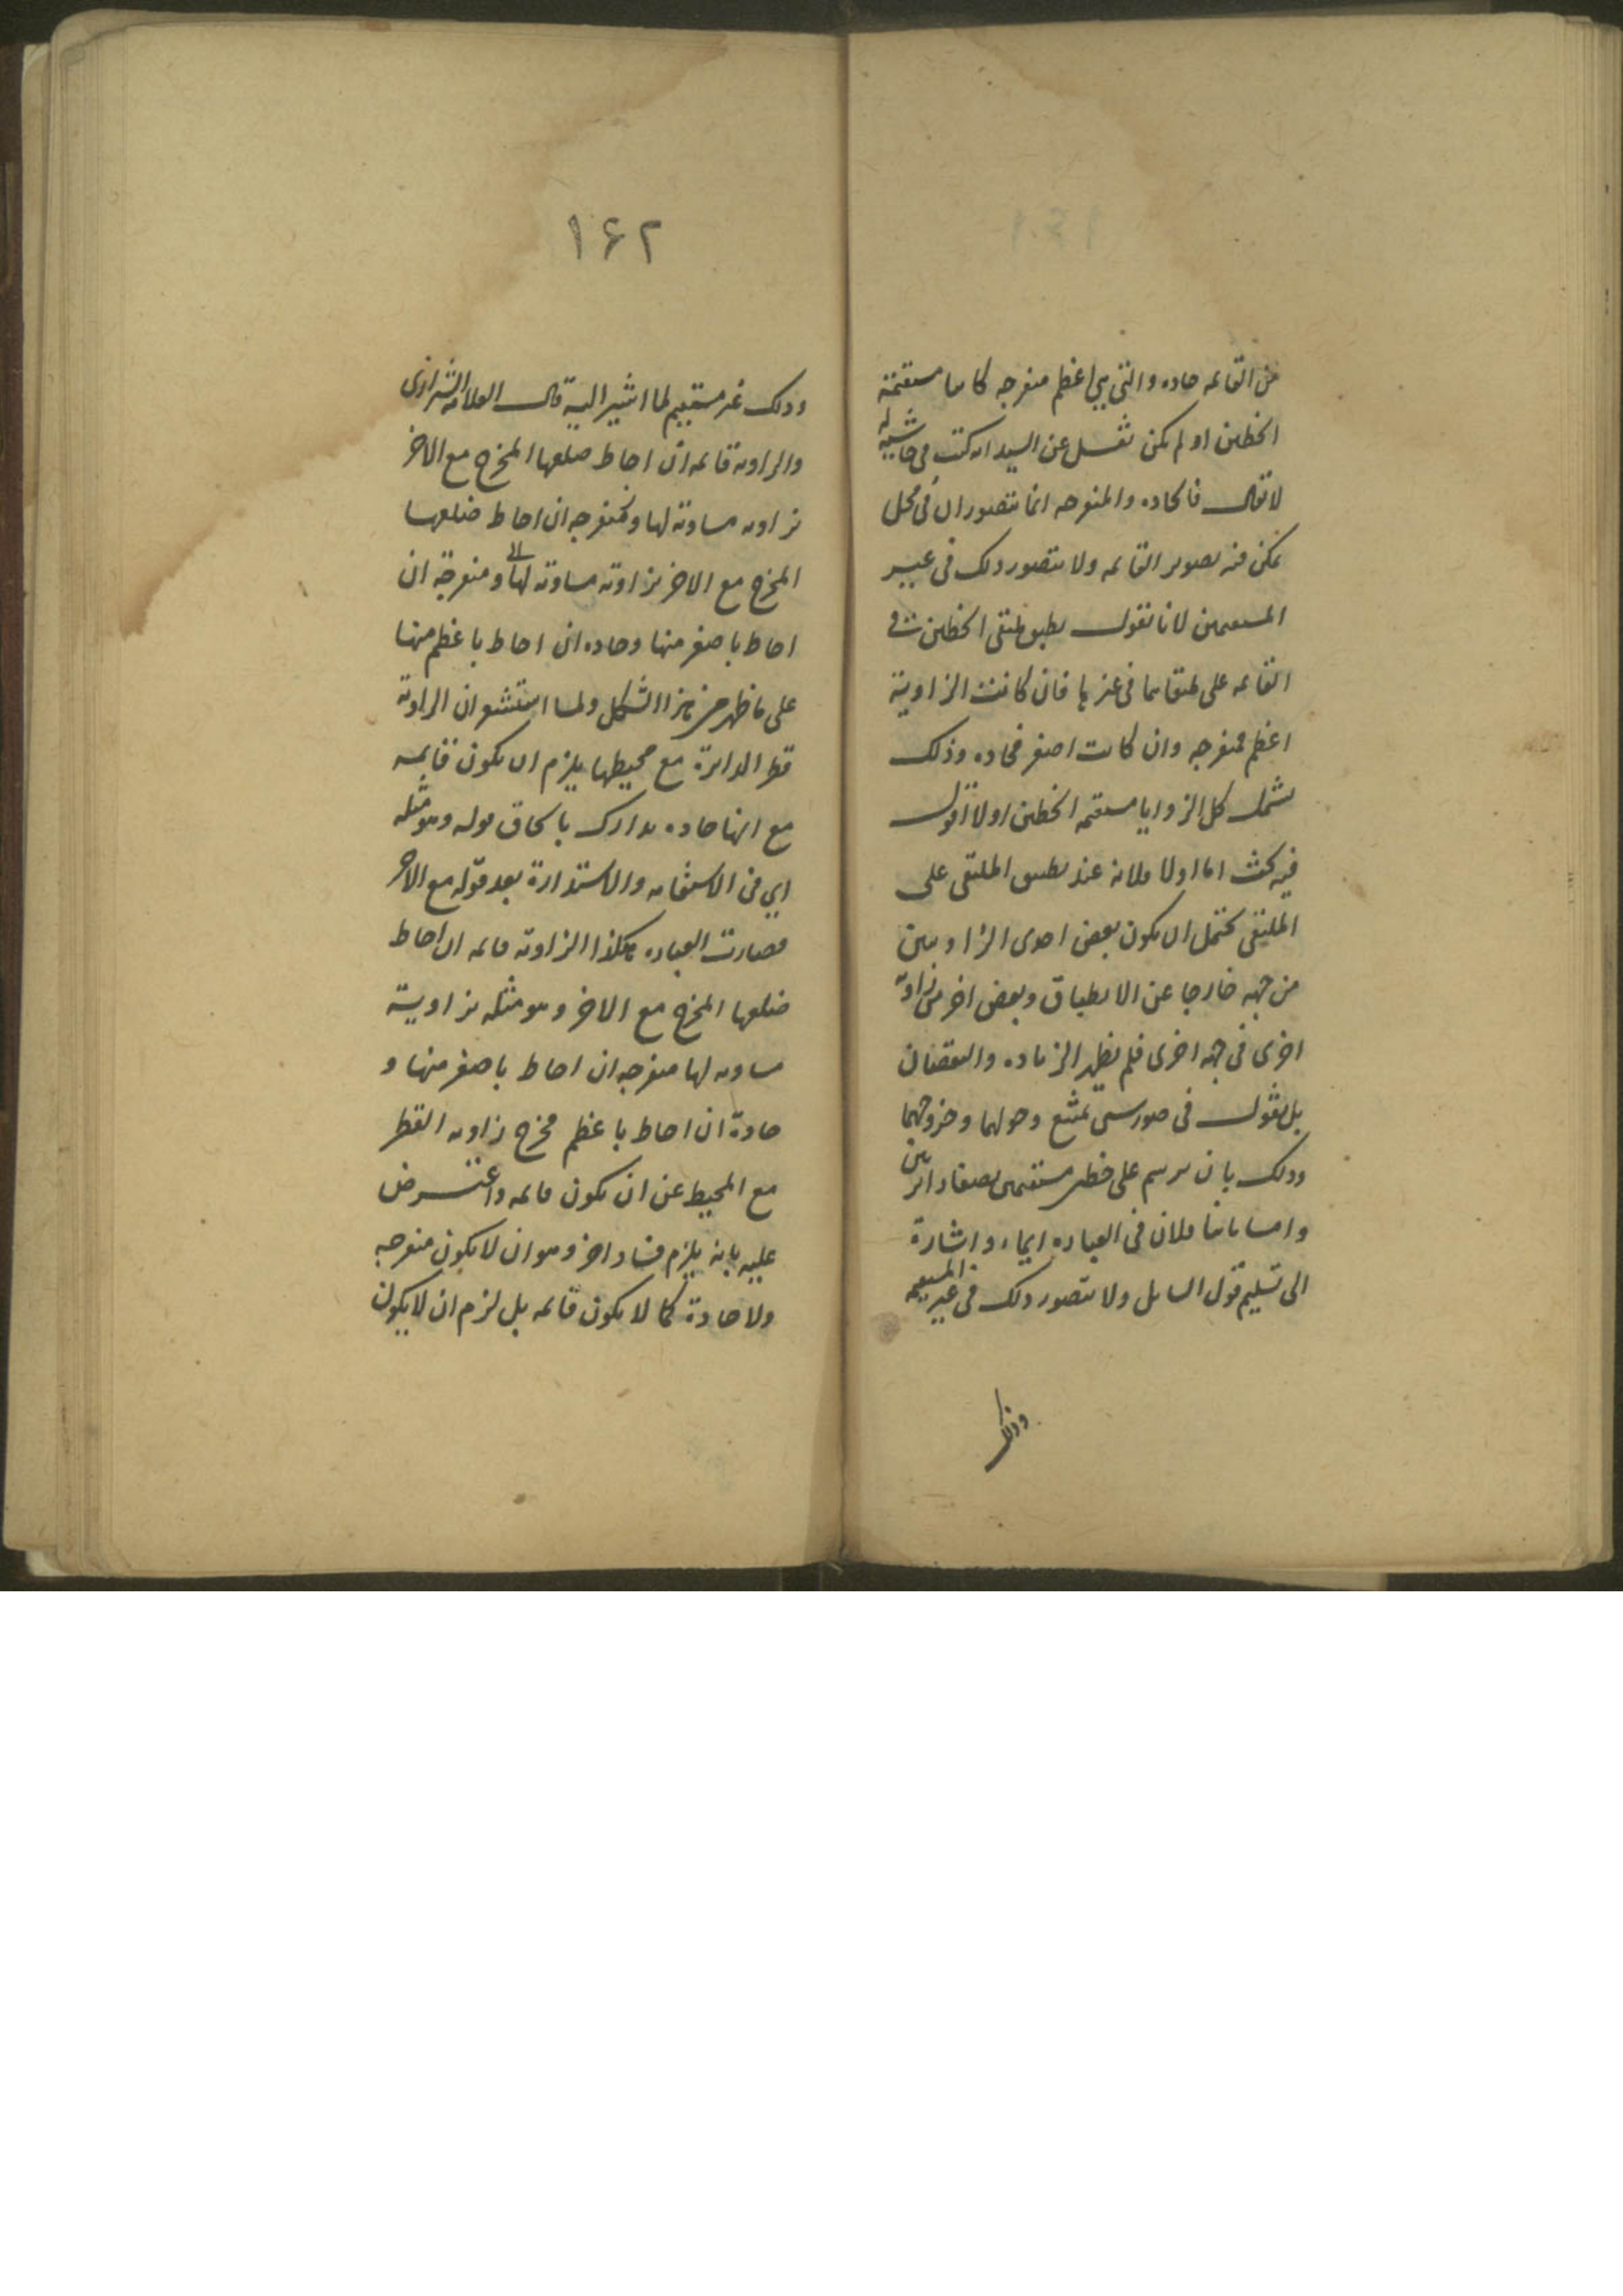 من القائمه حاده والتي هي اعظم منفرجه كانتا مستقيمة
الخطين او لم يكن نقل عن السيد انه كتب في حاشيه له
لا يقال فالحاده والمنفرجه انما يتصوران في محل
يمكن فيه تصور القائمه ولا يتصور ذلك في غير
المستقيمين لانا نقول يطبق ملتقى الخطين في
القائمه على ملتقاهما في غيرها فان كانت الزاوية
اعظم فمنفرجه وان كانت اصغر فحاده وذلك
يشمل كل الزوايا مستقيمه الخطين اولا اقول
فيه بحث اما اولا فلانه عند تطبيق الملتقى على
الملتقى يحتمل ان يكون بعض احدى الزاويتين
من جهه خارجا عن الانطباق وبعض اخر من زاوية
اخرى في جهه اخرى فلم يظهر الزياده والنقصان
بل نقول في صورتين يمتنع دخولهما وخروجهما
وذلك بان يرسم على خطين مستقيمين نصفا دائرتين
واما ثانيا فلان في العباره ايماء واشارة
الى تسليم قول السائل ولا يتصور ذلك في غير المستقيمه
وذلك
١۶٢
وذلك غير مستقيم لما اشير اليه قال العلامه الشيرازى
والزاوية قائمه ان احاط ضلعها المخرج مع الاخر
بزاويه مساوية لها وكمنفرجه ان احاط ضلعها
المخرج مع الاخر بزاوية مساوية لها ومنفرجة ان
احاط باصغر منها وحاده ان احاط باعظم منها
على ما ظهر من هذا الشكل ولما استشعر ان الزاوية
قطر الدائرة مع محيطها يلزم ان يكون قائمه
مع انها حاده تدارك بالحاق قوله وهو مثله
اي في الاستقامه والاستدارة بعد قوله مع الاخر
فصارت العباره هكذا الزاوية قائمه ان احاط
ضلعها المخرج مع الاخر وهو مثله بزاوية
مساويه لها منفرجه ان احاط باصغر منها و
حادة ان احاط باعظم فخرج زاويه القطر
مع المحيط عن ان يكون قائمه واعترض
عليه بانه يلزم فساد اخر وهو ان لا يكون منفرجه
ولا حادة كما لا يكون قائمه بل لزم ان لا يكون